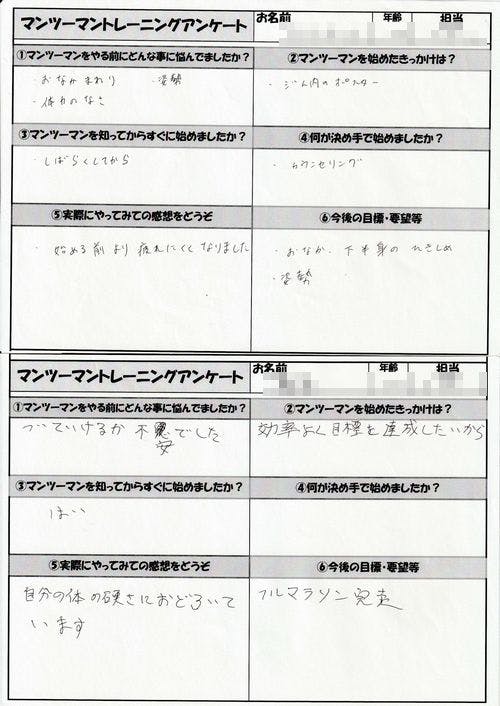 マンツーマントレーニングアンケート
お名前 年齢 担当
①マンツーマンをやる前にどんな事に悩んでましたか?
・おなかまわり ・姿勢
・体力のなさ
②マンツーマンを始めたきっかけは?
・ジム内のポスター
③マンツーマンを知ってからすぐに始めましたか?
・しばらくしてから
④何が決め手で始めましたか?
・カウンセリング
⑤実際にやってみての感想をどうぞ
・始める前より疲れにくくなりました
⑥今後の目標・要望等
・おなか、下半身のひきしめ
・姿勢
マンツーマントレーニングアンケート
お名前 年齢 担当
①マンツーマンをやる前にどんな事に悩んでましたか?
ついていけるか不安でした
②マンツーマンを始めたきっかけは?
効率よく目標を達成したいから
③マンツーマンを知ってからすぐに始めましたか?
はい
④何が決め手で始めましたか?
⑤実際にやってみての感想をどうぞ
自分の体の硬さにおどろいて
います
⑥今後の目標・要望等
フルマラソン完走